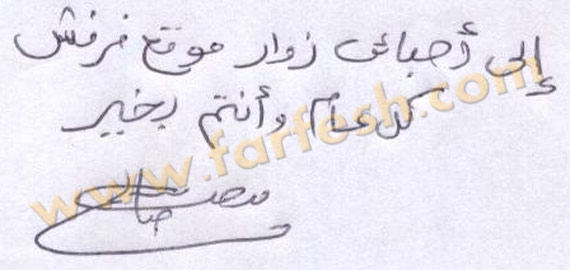 إلى أحبائى زوار موقع فرفش
كل عام وأنتم بخير
www.farfesh.com